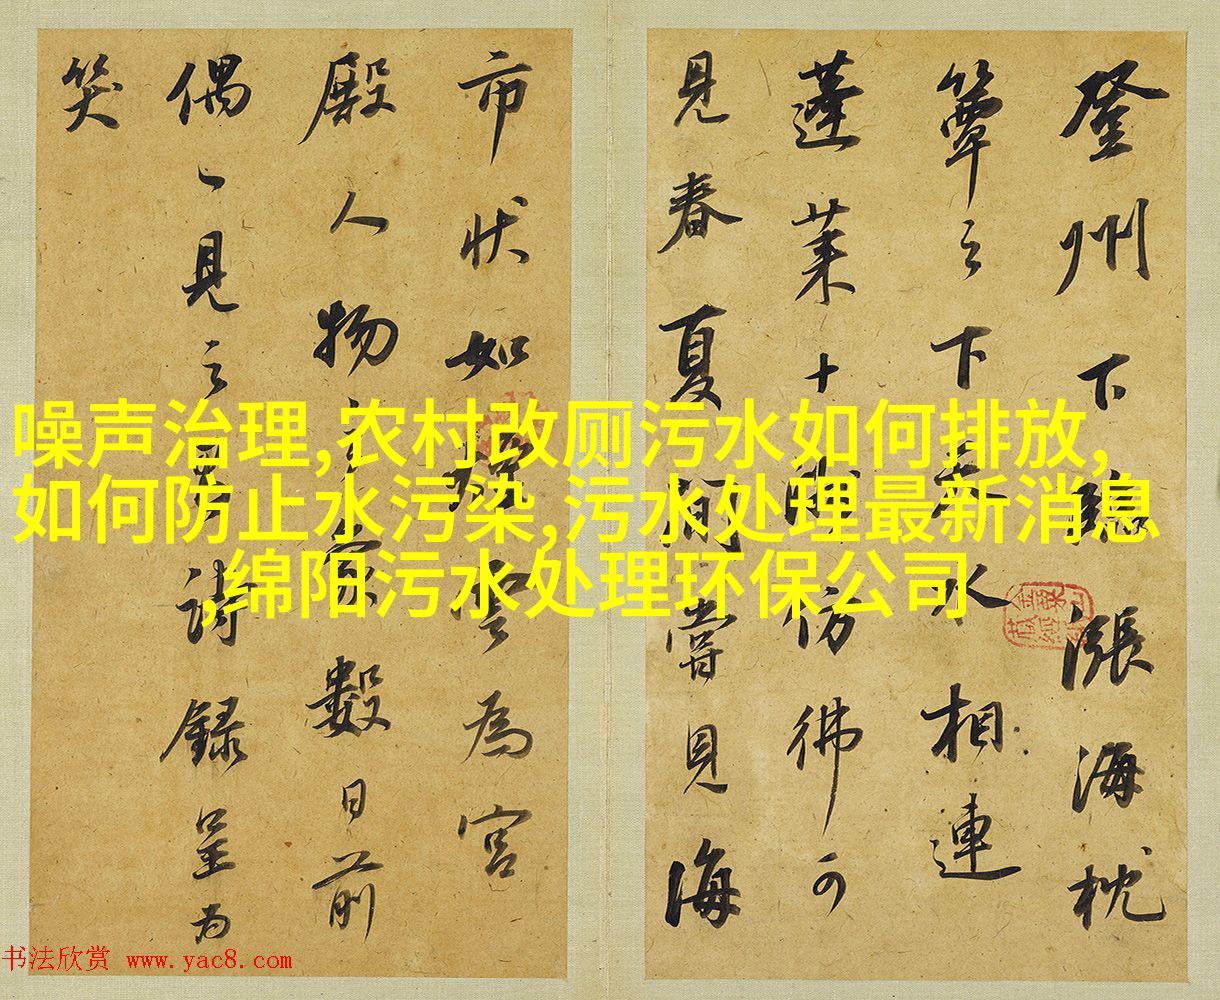 登州下臨漲海枕
簟之下天水相連
蓬莱十洲仿彿可
見春夏間嘗見海
市状如煙雲為宮
殿人物之象數日前
偶一見之詩録呈為
笑
噪声治理,农村改厕污水如何排放,
如何防止水污染,污水处理最新消息
,绵阳污水处理环保公司
书法欣赏 www.yac8.com